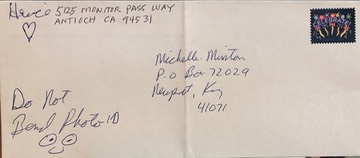 5125 MONITOR PASS WAY
ANTIOCH CA 94531
CELEBRATE!
Michelle Minton
P.O Box 72029
Newport, Ky
41071
Do Not
Bend Photo ID